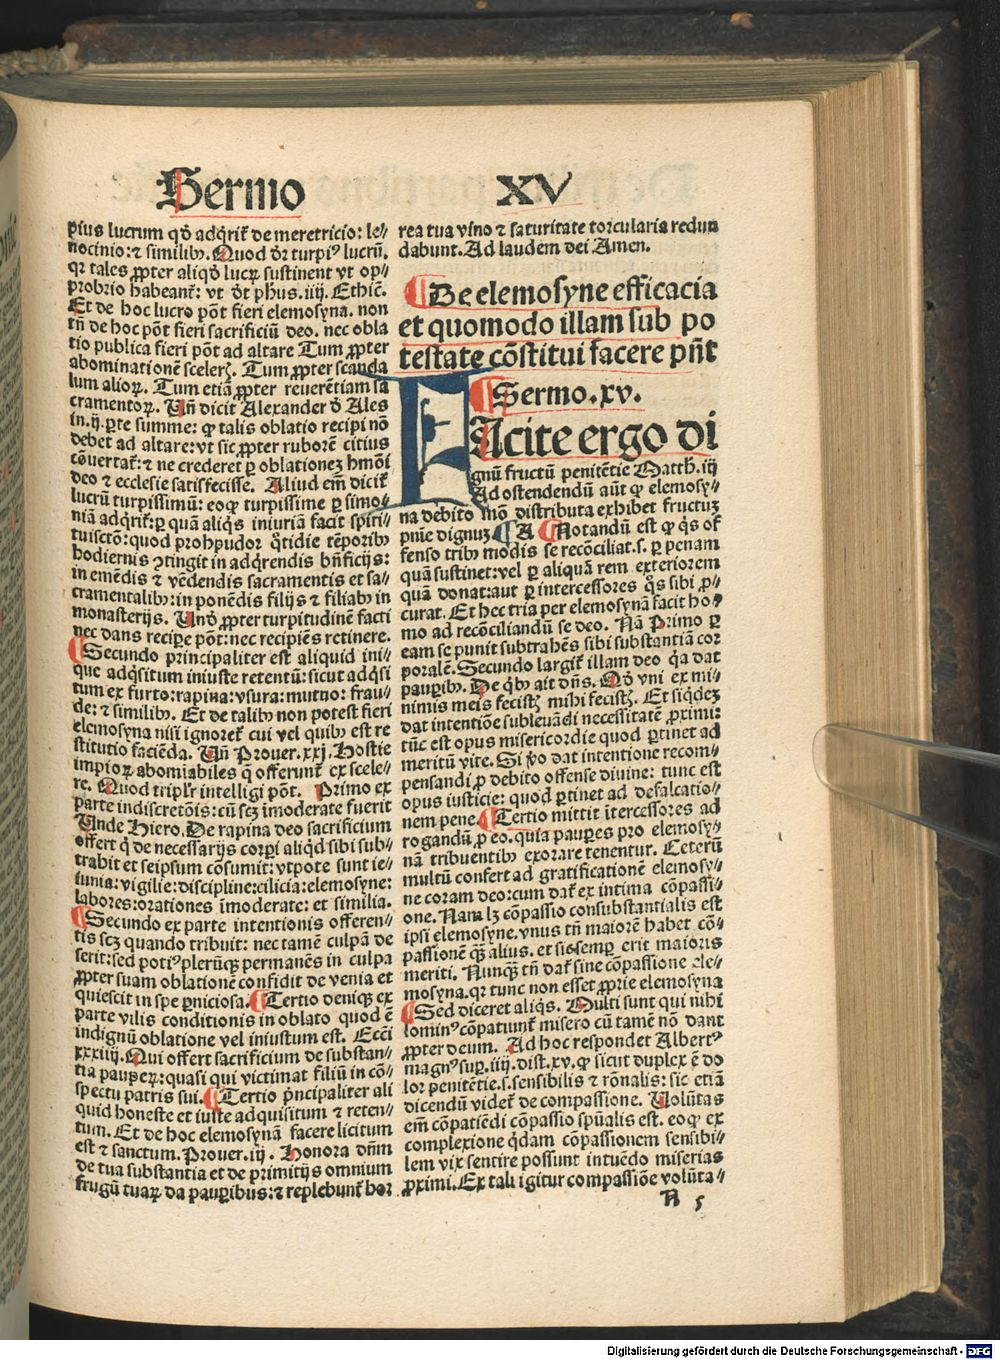 Sermo XV
pius lucrum qd̄ adq̄rit̄ de meretricio: le⸗
nocinio: ⁊ similib9. Quod d̄r turpi9 lucrū.
qꝛ tales ꝓpter aliqd̄ lucꝝ sustinent vt op⸗
probrio habeant̄: vt d̄t phus. iiij. Ethic̄.
Et de hoc lucro pōt fieri elemosyna. non
tn̄ de hoc pōt fieri sacrificiū deo. nec obla
tio publica fieri pōt ad altare Tum ꝓpter
abominationē sceleꝝ. Tum ꝓpter scanda
lum alioꝝ. Tum etiā ꝓpter reuerētiam sa
cramentoꝝ. Un̄ dicit Alexander d̄ Ales
in. ij. ꝑte summe: ꝙ talis oblatio recipi nō
debet ad altare: vt sic ꝓpter ruborē citius
cōuertat̄: ⁊ ne crederet ꝑ oblationez hmōi
deo ⁊ ecclesie satisfecisse. Aliud em̄ dicit̄
lucrū turpissimū: eoꝙ turpissime ꝑ simo⸗
niā adq̄rit̄: ꝑ quā aliq̄s iniuriā facit spiri⸗
tuisctō: quod prohpudor q̄tidie tēporib9
hodiernis ꝯtingit in adq̄rendis bn̄ficijs:
in emēdis ⁊ vēdendis sacramentis et sa⸗
cramentalib9: in ponēdis filijs ⁊ filiab9 in
monasterijs. Und̄ ꝓpter turpitudinē facti
nec dans reciꝑe pōt: nec recipiēs retinere.
¶ Secundo principaliter est aliquid ini⸗
que adq̄situm iniuste retentū: sicut adq̄si
tum ex furto: rapina: vsura: mutuo: frau⸗
de: ⁊ similib9. Et de talib9 non potest fieri
elemosyna nisi ignoret̄ cui vel quib9 est re
stitutio faciēda. Un̄ Prouer. xxj. Hostie
impioꝝ abomiabiles q̄ offerunt̄ ex scele⸗
re. Quod tripl̄r intelligi pōt. Primo ex
parte indiscretōis: cū scz īmoderate fuerit
Unde Hiero. De rapina deo sacrificium
offert q̄ de necessarijs corꝑi aliqd̄ sibi sub⸗
trahit et seipsum cōsumit: vtpote sunt ie⸗
iunia: vigilie: discipline: cilicia: elemosyne:
labores: orationes īmoderate: et similia.
¶ Secundo ex parte intentionis offeren⸗
tis scz quando tribuit: nec tamē culpā de
serit: sed poti9 plerūqꝫ permanēs in culpa
ꝓpter suam oblationē confidit de venia et
quiescit in spe ꝑniciosa. ¶ Tertio deniqꝫ ex
parte vilis conditionis in oblato quod ē
indignū oblatione vel iniustum est. Ecc̄i
xxxiiij. Qui offert sacrificium de substan⸗
tia pauꝑeꝝ: quasi qui victimat filiū in cō⸗
spectu patris sui. ¶ Tertio p̄ncipaliter ali
quid honeste et iuste adquisitum ⁊ reten⸗
tum. Et de hoc elemosynā facere licitum
est ⁊ sanctum. Prouer. iij. Honora dn̄m
de tua substantia et de primitijs omnium
frugū tuaꝝ da pauꝑibus: ⁊ replebunt̄ hor
rea tua vino ⁊ saturitate torcularia redun
dabunt. Ad laudem dei Amen.
¶ De elemosyne efficacia
et quomodo illam sub po
testate cōstitui facere pn̄t
¶ Sermo. xv.
FAcite ergo di
gnū fructū penitētie Matth. iij
Ad ostendendū aūt ꝙ elemosy⸗
na debito mō distributa exhibet fructuz
pn̄ie dignuz ¶ A ¶ Notandū est ꝙ q̄s of
fenso trib9 modis se recōciliat. s. ꝑ penam
quā sustinet: vel ꝑ aliquā rem exteriorem
quā donat: aut ꝑ intercessores q̄s sibi ꝓ⸗
curat. Et hec tria per elemosynā facit ho⸗
mo ad recōciliandū se deo. Nā Primo ꝑ
eam se punit subtrahēs sibi substantiā cor
poralē. Secundo largit̄ illam deo q̄a dat
pauꝑib9. De q̄b9 ait dn̄s. Qd̄ vni ex mi⸗
nimis meis fecistꝫ mihi fecistꝫ. Et siqd̄ez
dat intentiōe subleuādi necessitatē ꝓximi:
tūc est opus misericordie quod ꝑtinet ad
meritū vite. Si v̄o dat intentione recom⸗
pensandi ꝓ debito offense diuine: tunc est
opus iusticie: quod ꝑtinet ad defalcatio⸗
nem pene. ¶ Tertio mittit īntercessores ad
rogandū ꝓ eo. quia pauꝑes pro elemosy⸗
nā tribuentib9 exorare tenentur. Ceterū
multū confert ad gratificationē elemosy⸗
ne coram deo: cum dat̄ ex intima cōpassi⸗
one. Nam lꝫ cōpassio consubstantialis est
ipsi elemosyne. vnus tn̄ maiorē habet cō⸗
passionē q̄ꝫ alius. et si semꝑ erit maioris
meriti. Nunq̄ꝫ tn̄ dat̄ sine cōpassione ele⸗
mosyna. qꝛ tunc non esset ꝓprie elemosyna
¶ Sed diceret aliq̄s. Multi sunt qui nihil
lomin9 cōpatiunt̄ misero cū tamē nō dant
ꝓpter deum. Ad hoc respondet Albert9
magn9 suꝑ. iiij. dist. xv. ꝙ sicut duplex ē do
lor penitētie. s. sensibilis ⁊ rōnalis: sic etiā
dicendū videt̄ de compassione. Uolūtas
em̄ cōpatiēdi cōpassio spūalis est. eoꝙ ex
complexione qd̄am cōpassionem sensibi⸗
lem vix sentire possunt intuēdo miserias
ꝓximi. Ex tali igitur compassiōe volūta⸗
R 5
Digitalisierung gefördert durch die Deutsche Forschungsgemeinschaft - DFG